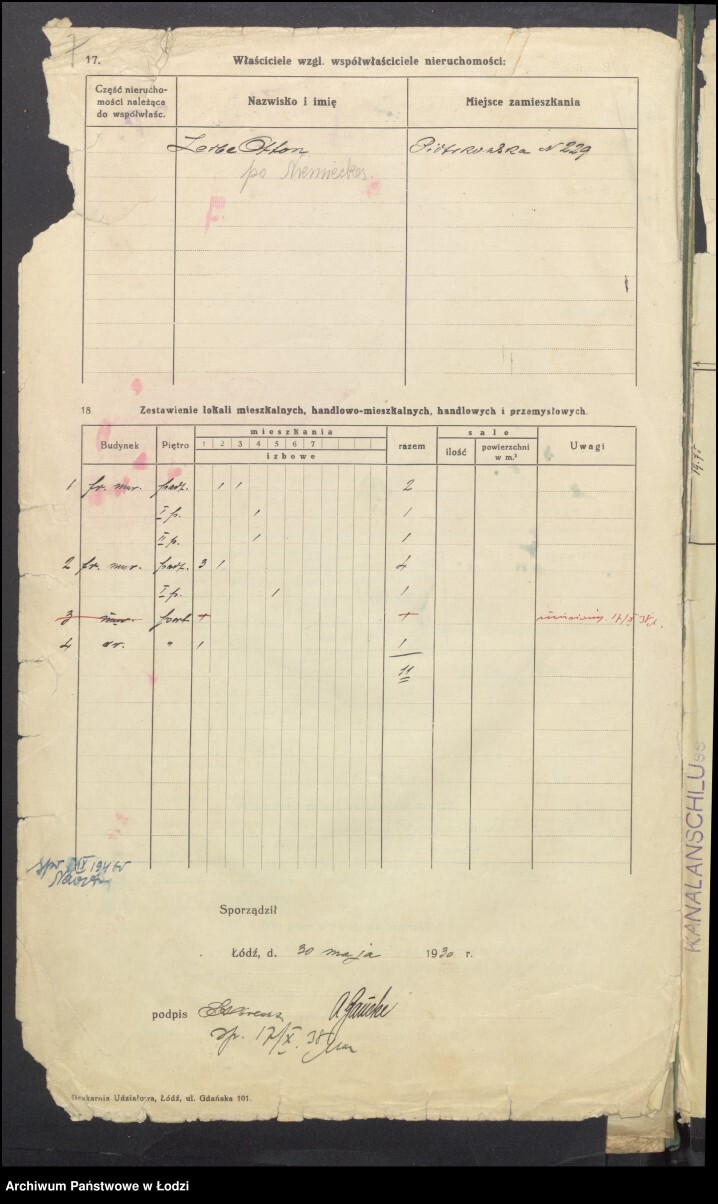 17. Właściciele wzgl. współwłaściciele nieruchomości:
Część nierucho-
mości należąca
do współwłaśc.
Nazwisko i imię
Miejsce zamieszkania
Zerbe Otton
Piotrkowska N 229
po Niemieckej.
18 Zestawienie lokali mieszkalnych, handlowo-mieszkalnych, handlowych i przemysłowych.
Budynek
Piętro
mieszkania
1 2 3 4 5 6 7
izbowe
razem
sale
ilość
powierzchni
w m.²
Uwagi
1 fr. mur. part. 1 1 2
I p. 1 1
II p. 1 1
2 fr. mur. part. 3 1 4
I p. 1 1
3 mur. part 17/X 38 r.
4 dr. " 1 1
11
IX 194
Sporządził
Łódź, d. 30 maja 1930 r.
podpis
17/X. 38
Drukarnia Udziałowa, Łódź, ul. Gdańska 101.
KANALANSCHLUSS
Archiwum Państwowe w Łodzi